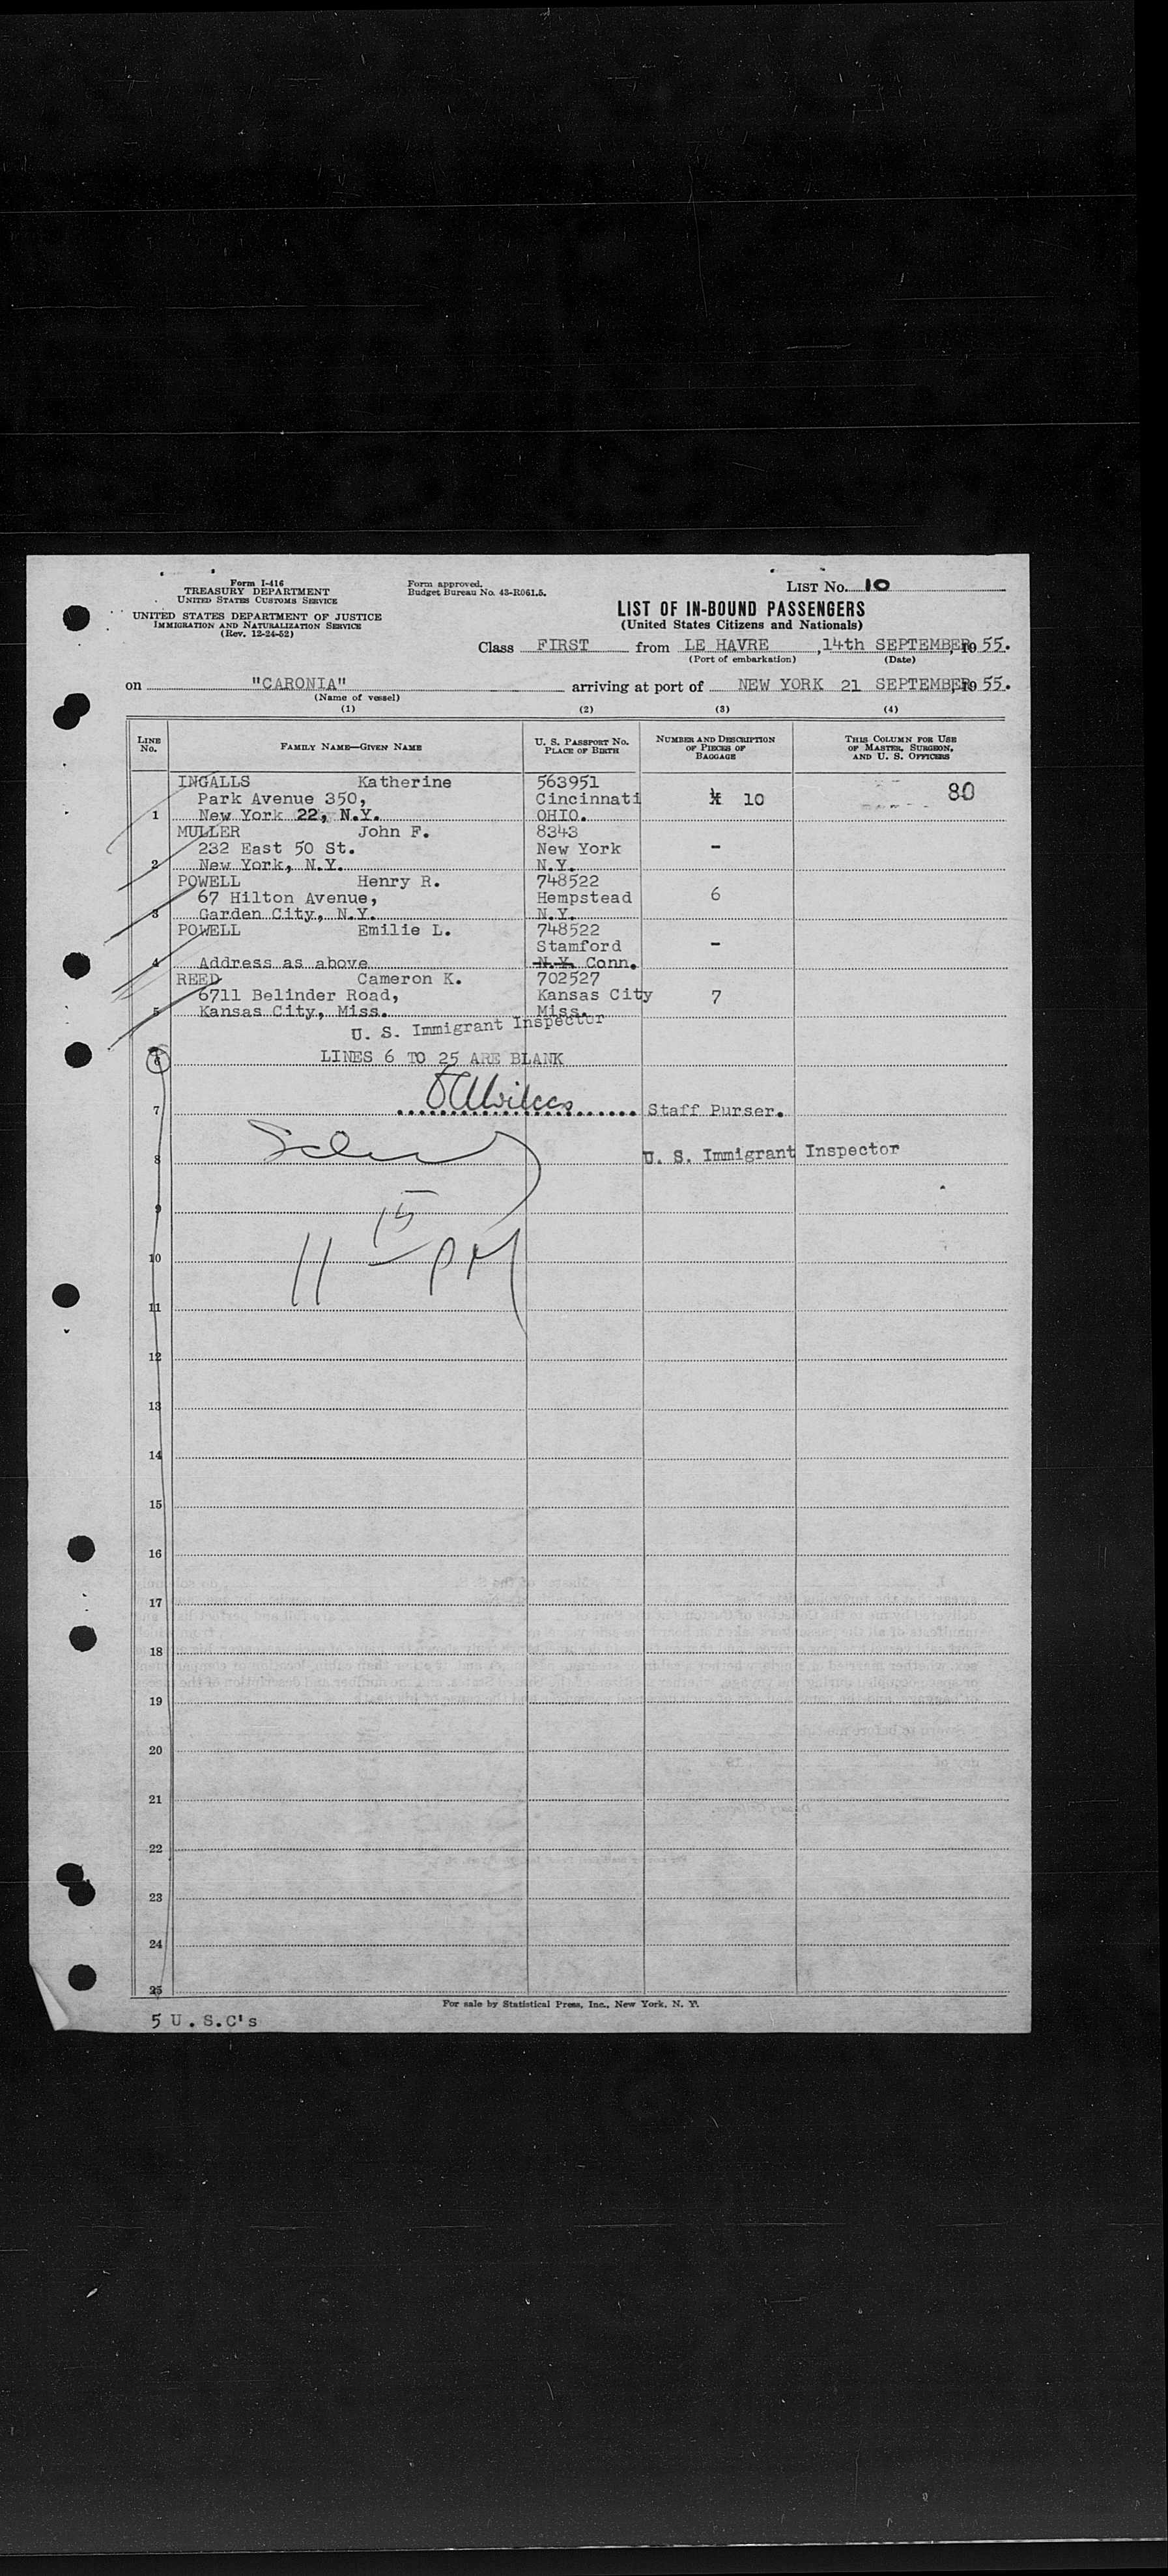 Form I-416
TREASURY DEPARTMENT
UNITED STATES CUSTOMS SERVICE
UNITED STATES DEPARTMENT OF JUSTICE
IMMIGRATION AND NATURALIZATION SERVICE
(Rev. 12-24-52)
Form approved.
Budget Bureau No. 43-R061.5.
LIST No. 10
LIST OF IN-BOUND PASSENGERS
(United States Citizens and Nationals)
Class FIRST from LE HAVRE, 14th SEPTEMBER, 1955.
(Port of embarkation) (Date)
on "CARONIA" arriving at port of NEW YORK 21 SEPTEMBER, 1955.
(Name of vessel)
(1) (2) (3) (4)
LINE No. FAMILY NAME—GIVEN NAME U. S. PASSPORT No. PLACE OF BIRTH NUMBER AND DESCRIPTION OF PIECES OF BAGGAGE THIS COLUMN FOR USE OF MASTER, SURGEON, AND U. S. OFFICERS
INGALLS Katherine 563951
Park Avenue 350, Cincinnati 10 80
1 New York 22, N.Y. OHIO.
MULLER John F. 8343
232 East 50 St. New York -
2 New York, N.Y. N.Y.
POWELL Henry R. 748522
67 Hilton Avenue, Hempstead 6
3 Garden City, N.Y. N.Y.
POWELL Emilie L. 748522
Stamford -
4 Address as above N.Y. Conn.
REED Cameron K. 702527
6711 Belinder Road, Kansas City 7
5 Kansas City, Miss. Miss.
U. S. Immigrant Inspector
6 LINES 6 TO 25 ARE BLANK
7 Staff Purser.
8 U. S. Immigrant Inspector
9
10 11 15 PM
11
12
13
14
15
16
17
18
19
20
21
22
23
24
25
For sale by Statistical Press, Inc., New York, N. Y.
5 U.S.C's